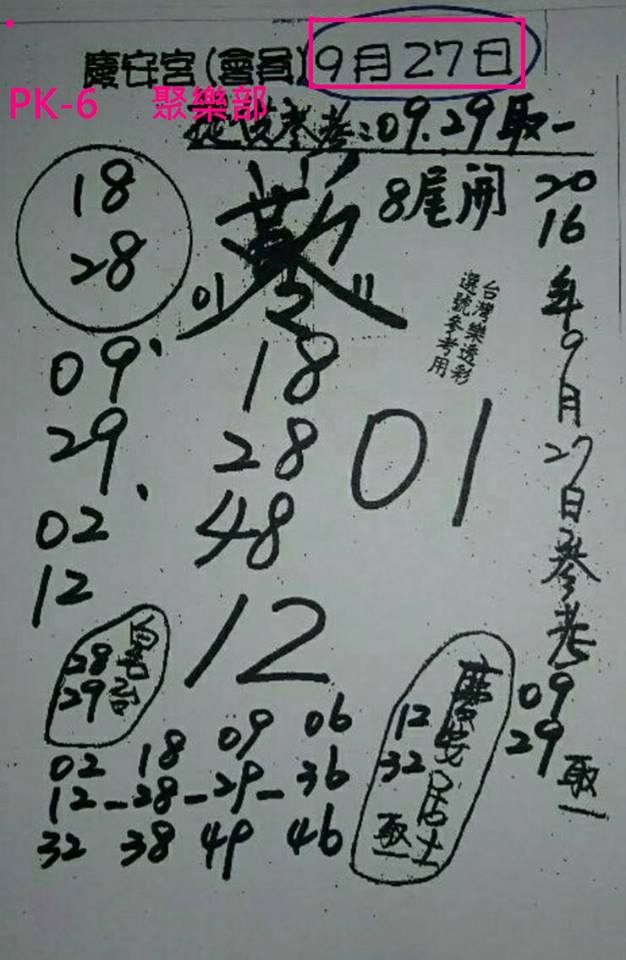 慶安宮(會員)9月27日
PK-6 聚樂部
提供參考:09.29取一
18
28
8尾開
01
11
台灣樂透彩
選號參考用
2016年9月27日參考
09
29
取一
09
29
02
12
18
28
48
01
12
28
29
12
32
取一
慶安居士
02 18 09 06
12-28-29-36
32 38 49 46